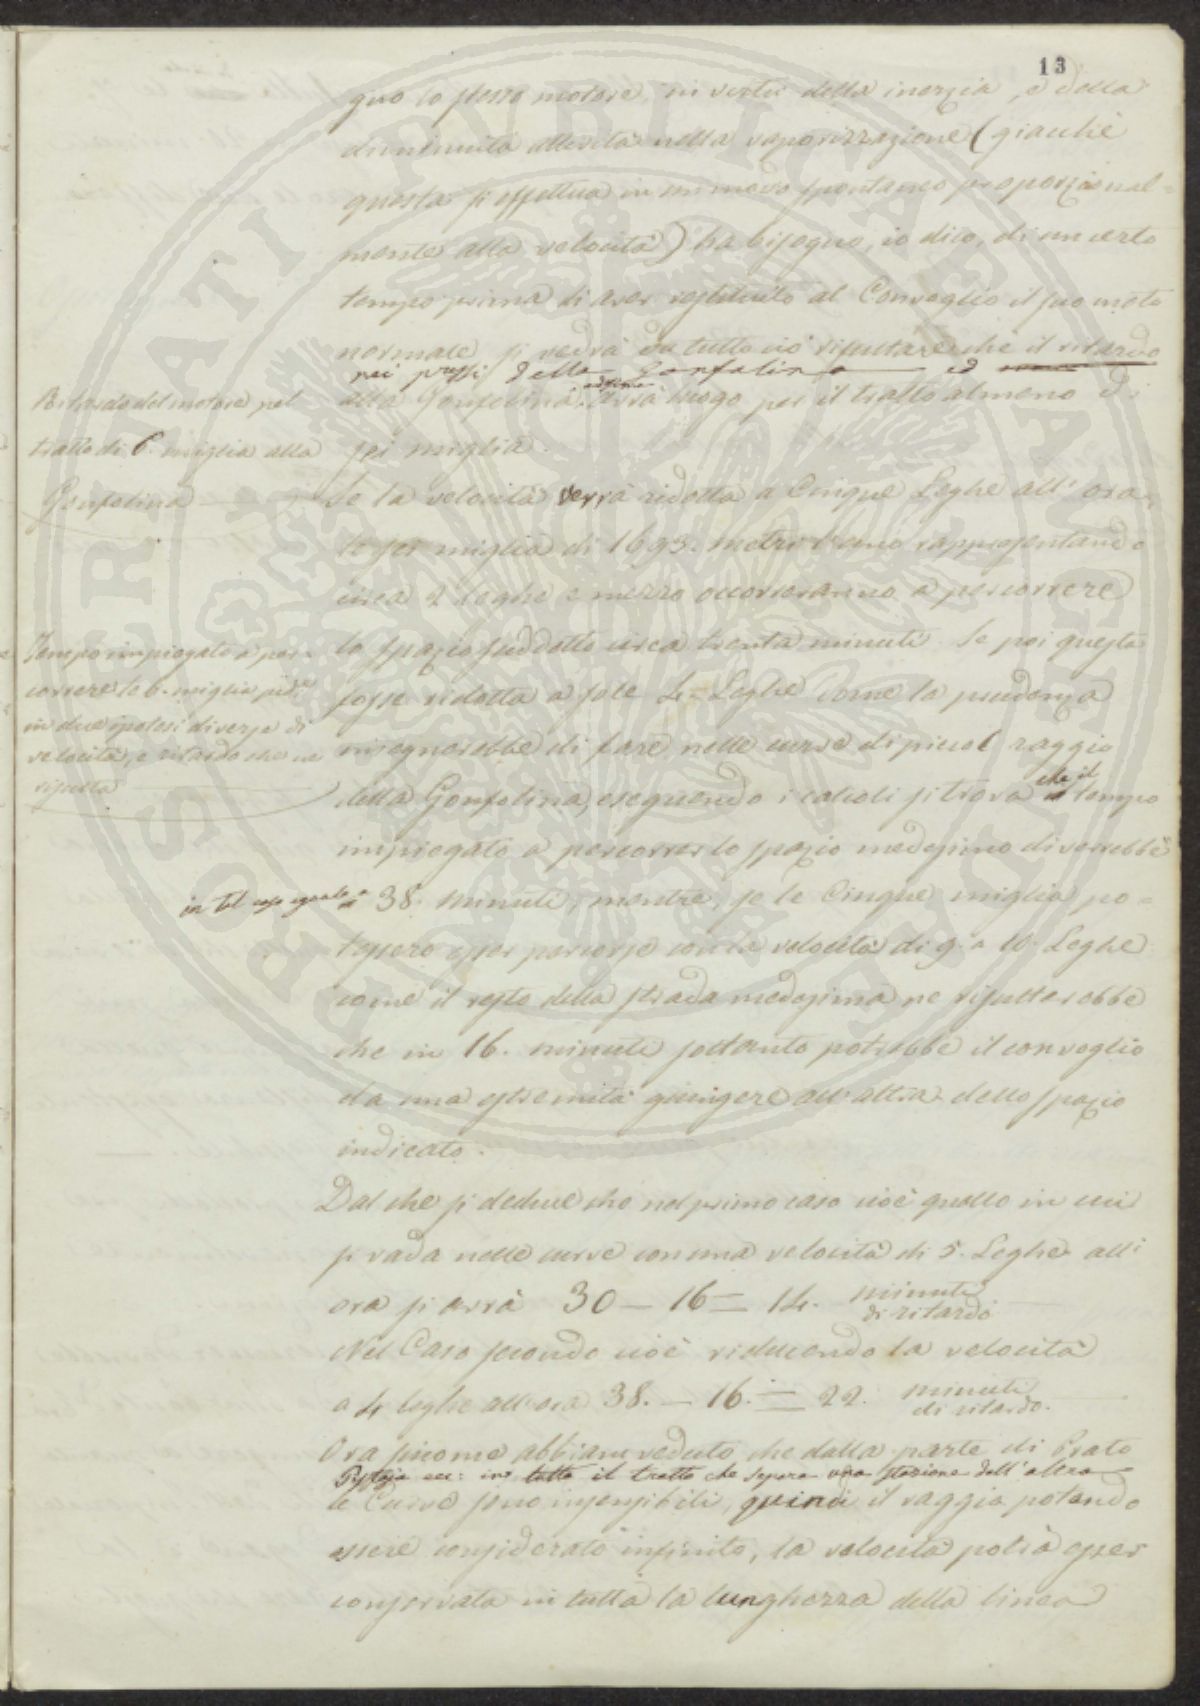 13
guo lo stesso motore, in virtù della inerzia, e della
diminuita attività nella vaporizzazione (giacchè
questa si effettua in un modo spontaneo proporzional=
mente alla velocità) ha bisogno, io dico, di un certo
tempo prima di aver restituito al Convoglio il suo moto
normale, si vedrà da tutto ciò risultare che il ritardo
nei pressi della Gonfolina ed
alla Gonfolina avrà luogo per il tratto almeno di
sei miglia.
Ritardo del motore nel
tratto di 6 miglia alla
Gonfolina
Se la velocità verrà ridotta a Cinque Leghe all'ora,
le sei miglia di 1693. metri l'uno rappresentando
circa 2 leghe e mezzo occorreranno a percorrere
lo spazio suddetto circa trenta minuti. Se poi questa
fosse ridotta a sole 4= Leghe come la prudenza
insegnerebbe di fare nelle curve di piccol raggio
della Gonfolina, eseguendo i calcoli si trova che il tempo
impiegato a percorrer lo spazio medesimo diverrebbe
in tal caso eguale a 38. minuti, mentre, se le Cinque miglia po=
tessero esser percorse con la velocità di 9. a 10. Leghe
come il resto della strada medesima ne risulterebbe
che in 16. minuti soltanto potrebbe il convoglio
da una estremità giungere all'altra dello spazio
indicato.
Tempo impiegato a per=
correre le 6. miglia sudd.e
in due ipotesi diverse di
velocità, e ritardo che ne
risulta
Dal che si deduce che nel primo caso cioè quello in cui
si vada nelle curve con una velocità di 5. Leghe all'
ora si avrà 30 — 16 = 14. minuti di ritardo
Nel Caso secondo cioè riducendo la velocità
a 4 leghe all'ora 38. — 16. = 22. minuti di ritardo.
Ora siccome abbiam veduto che dalla parte di Prato
Pistoja ecc: in tutto il tratto che separa una stazione dall'altra
le Curve sono insensibili, quindi il raggio potendo
essere considerato infinito, la velocità potrà esser
conservata in tutta la lunghezza della linea